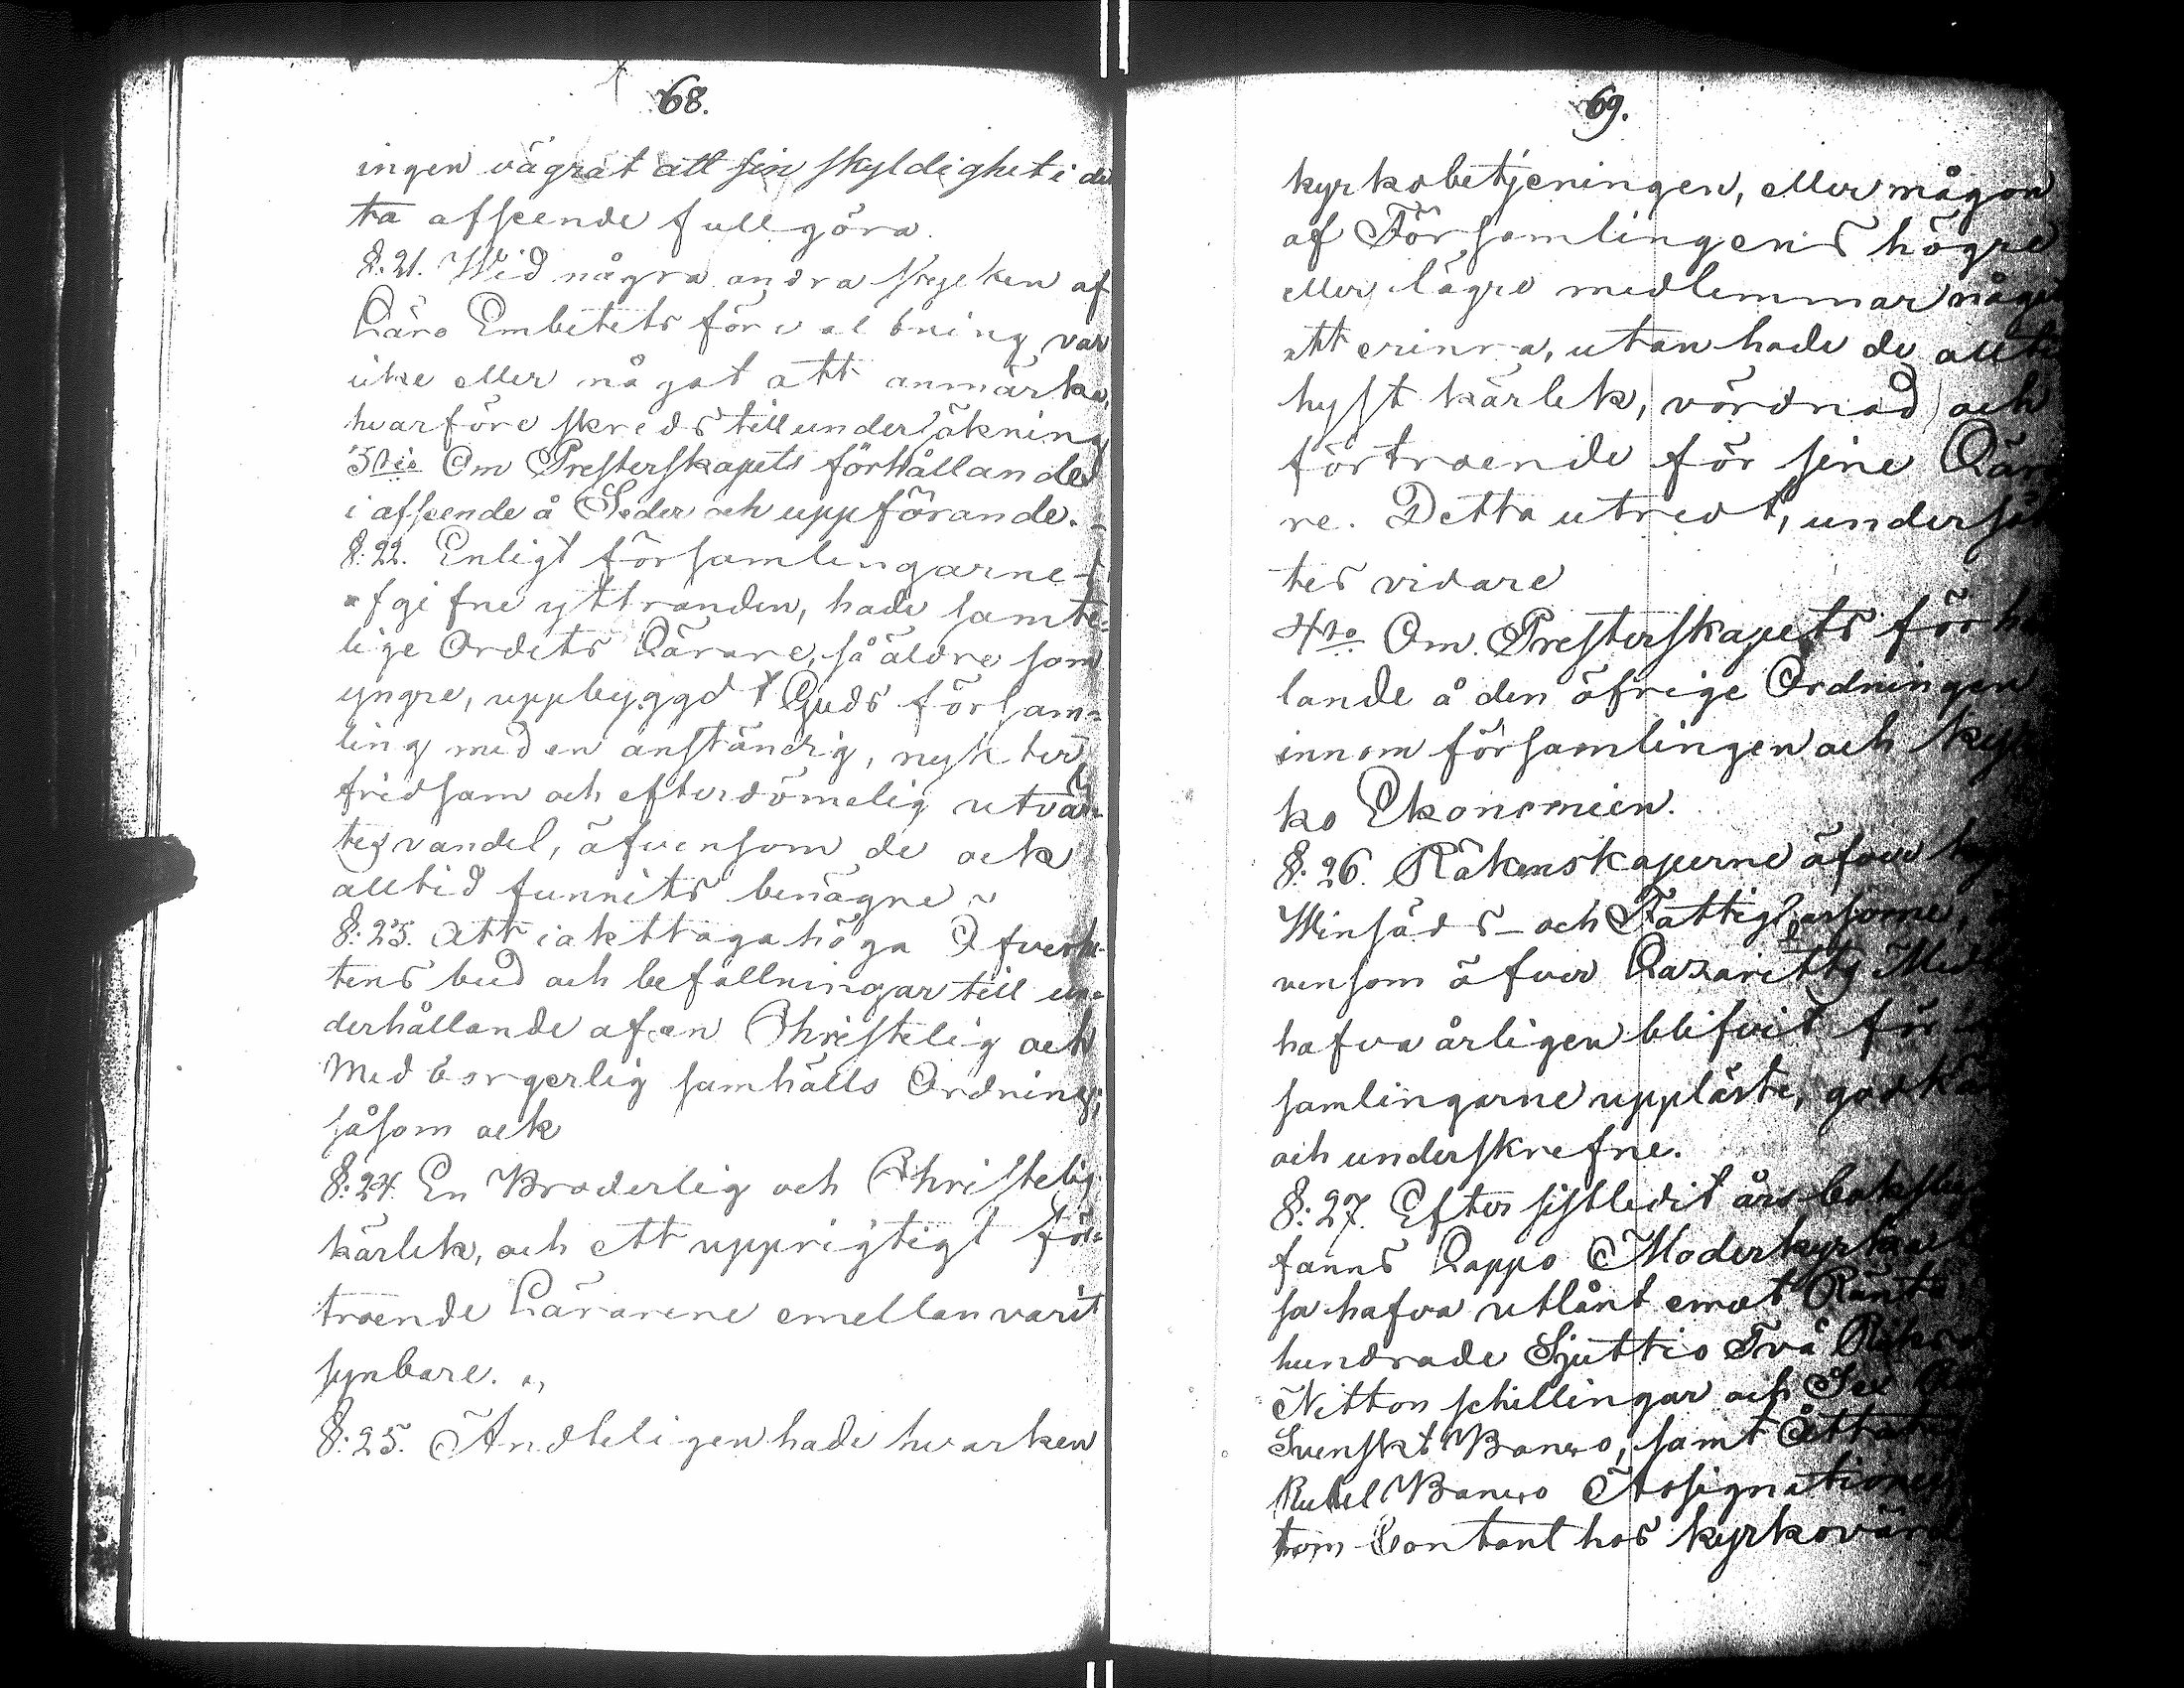 68.
ingen vägrat att sin skyldighet i det
ta afseende fullgöra.
§. 21. Wid några andra stycken af
Läro Embetets förvaltning var
icke eller något att anmärka,
hvarföre skreds till undersökning
3tio Om Presterskapets förhållande
i afseende å Seder och uppförande.
§. 22. Enligt församlingarnes
afgifne yttranden, hade samte-
lige Ordets Lärare, så äldre som
yngre, uppbyggdt Guds försam-
ling med en anständig, nykter
fridsam och efterdömelig utvär-
tes vandel, äfvensom de ock
alltid funnits benägne
§. 23. Att iakttaga höga Öfverhe-
tens bud och befallningar till un-
derhållande af en Christelig och
Medborgerlig samhälls Ordning;
såsom ock
§. 24. En Broderlig och Christelig
kärlek, och ett upprigtigt för-
troende Lärarene emellan varit
synbare.
§. 25. Ändteligen hade hvarken
69.
kyrkobetjeningen, eller någon
af Församlingens högre
eller lägre medlemmar något
att erinra, utan hade de allti
hyst kärlek, vördnad och
förtroende för sine Lära
re. Detta utredt, undersök
tes vidare
4to Om Presterskapets förhål
lande å den öfrige Ordningen
innom församlingen och kyr
ko Ekonomien.
§. 26. Räkenskaperne äfver
Winsäds- och Fattig, ä
vensom öfver Lazaretts Med
hafva årligen blifvit för
samlingarne uppläste, godkä
och underskrefne.
§. 27. Efter sistledit års bokslu
fanns Lappo Moderkyrka
sa hafva utlånt emot Ränta
hundrade Sjuttio Två Riksd
Nitton schillingar och Sex
Svenskt Banco, samt Åttatio
Rubel Banco Assignationer
tom Contant hos kyrkovärd